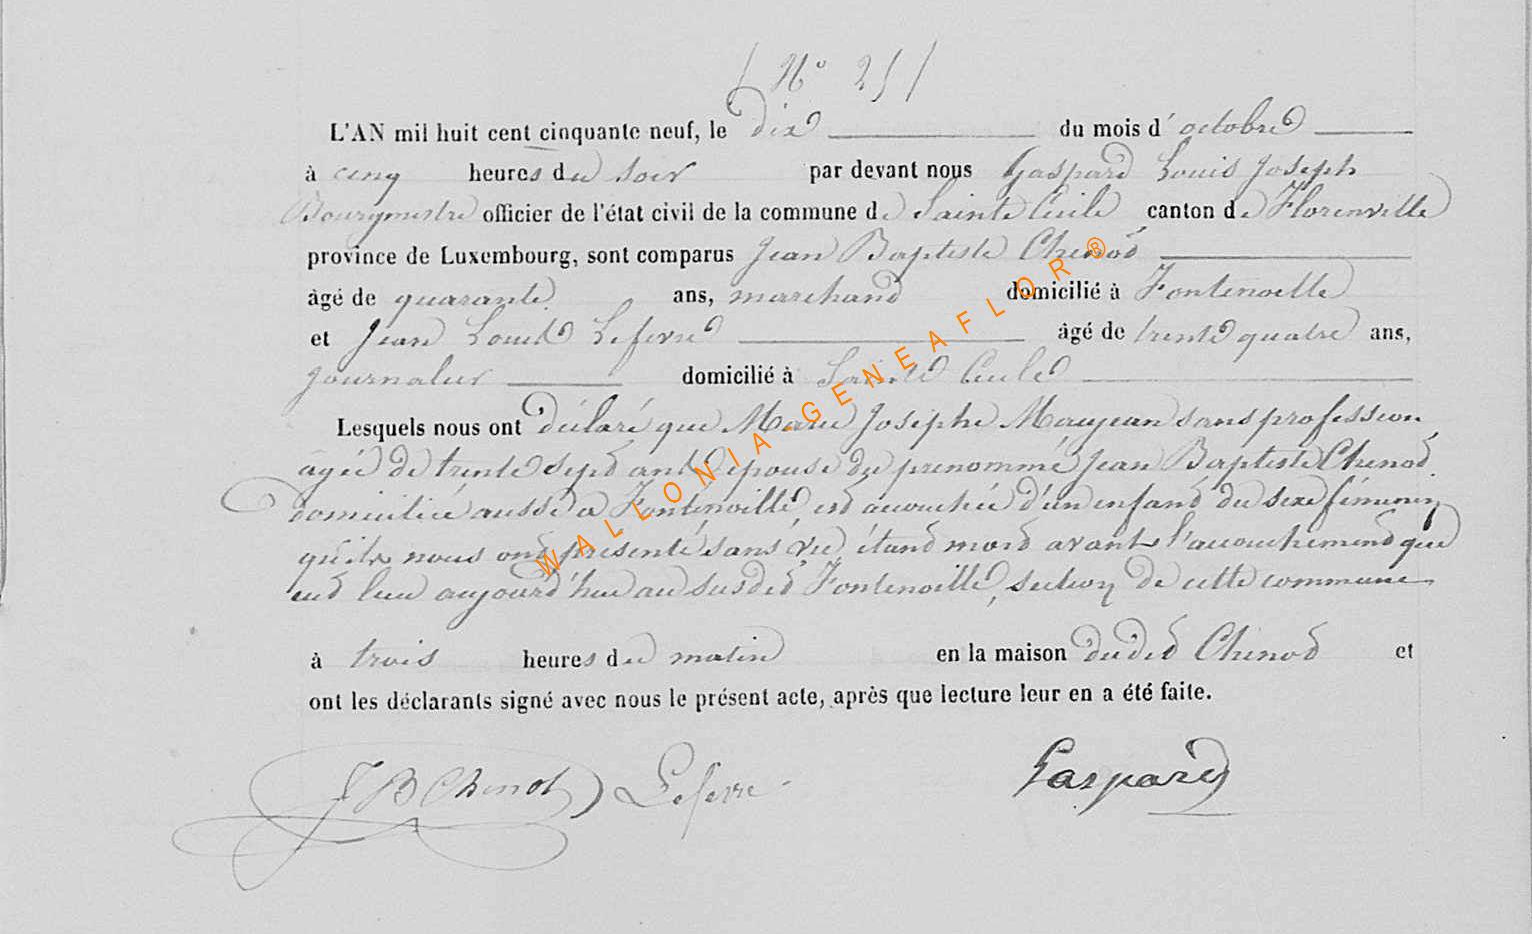 ( N° 25 )
L'AN mil huit cent cinquante neuf, le dix du mois d' octobre
à cinq heures du soir par devant nous Gaspard Louis Joseph
Bourgmestre officier de l'état civil de la commune de Sainte Cécile canton de Florenville
province de Luxembourg, sont comparus Jean Baptiste Chenot
âgé de quarante ans, marchand domicilié à Fontenoille
et Jean Louis Lefevre âgé de trente quatre ans,
journalier domicilié à Sainte Cécile
Lesquels nous ont déclaré que Marie Josèphe Maujean sans profession
âgée de trente sept ans épouse du prénommé Jean Baptiste Chenot
domiciliée aussi à Fontenoille, est accouchée d'un enfant du sexe féminin
qu'ils nous ont présenté sans vie, étant mort avant l'accouchement que
eut lieu aujourd'hui au susdit Fontenoille, section de cette commune
à trois heures du matin en la maison dudit Chenot et
ont les déclarants signé avec nous le présent acte, après que lecture leur en a été faite.
JB Chenot Lefevre Gaspard
WALLONIA-GENEAFLOR®